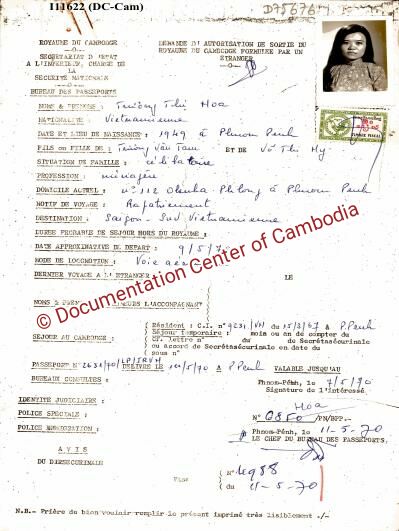 111622 (DC-Cam)
D75676
ROYAUME DU CAMBODGE
SECRETARIAT D'ETAT
A L'INTERIEUR, CHARGE DE
LA
SECURITE NATIONALE
BUREAU DES PASSEPORTS
DEMANDE D'AUTORISATION DE SORTIE DU
ROYAUME DU CAMBODGE FORMULEE PAR UN
ETRANGER
NOMS & PRENOMS : Trương Thị Hoa
NATIONALITE : Vietnamienne
DATE ET LIEU DE NAISSANCE : 1949 à Phnom Penh
FILS ou FILLE DE : Trương Văn Tam ET DE Võ Thị Hy
SITUATION DE FAMILLE : célibataire
PROFESSION : ménagère
DOMICILE ACTUEL : n° 112 Phlong à Phnom Penh
MOTIF DE VOYAGE : Rapatriement
DESTINATION : Saigon - Sud Vietnamienne
DUREE PROBABLE DE SEJOUR HORS DU ROYAUME :
DATE APPROXIMATIVE DU DEPART : 9/5/70
MODE DE LOCOMOTION : Voie
DERNIER VOYAGE A L'ETRANGER : LE
NOMS & L'ACCOMPAGNANT
SEJOUR AU CAMBODGE :
Résident : C.I. n° 9231 VN du 15/3/67 à P.Penh
Séjour Temporaire : mois ou an de compter du
CF. lettre n° du de Secrétasécurinale
ou Accord de Secrétasécurinale en date du
sous n°
PASSEPORT N° 2631/70/LP/SRVN DELIVRE LE à P.Penh VALABLE JUSQU'AU
BUREAUX CONSULTES :
Phnom-Pénh, 7/5/70
Signature de l'intéressé
Hoa
IDENTITE JUDICIAIRE :
POLICE SPECIALE :
POLICE
N° 0850/PN/BPP.-
Phnom-Penh, le 11-5-70
LE CHEF DU BUREAU DES PASSEPORTS,
AVIS
DU DIRSECURINALE
Visa
N° 4988
du 11-5-70
N.B.- Prière de bien vouloir remplir le présent imprimé très lisiblement ./-
© Documentation Center of Cambodia